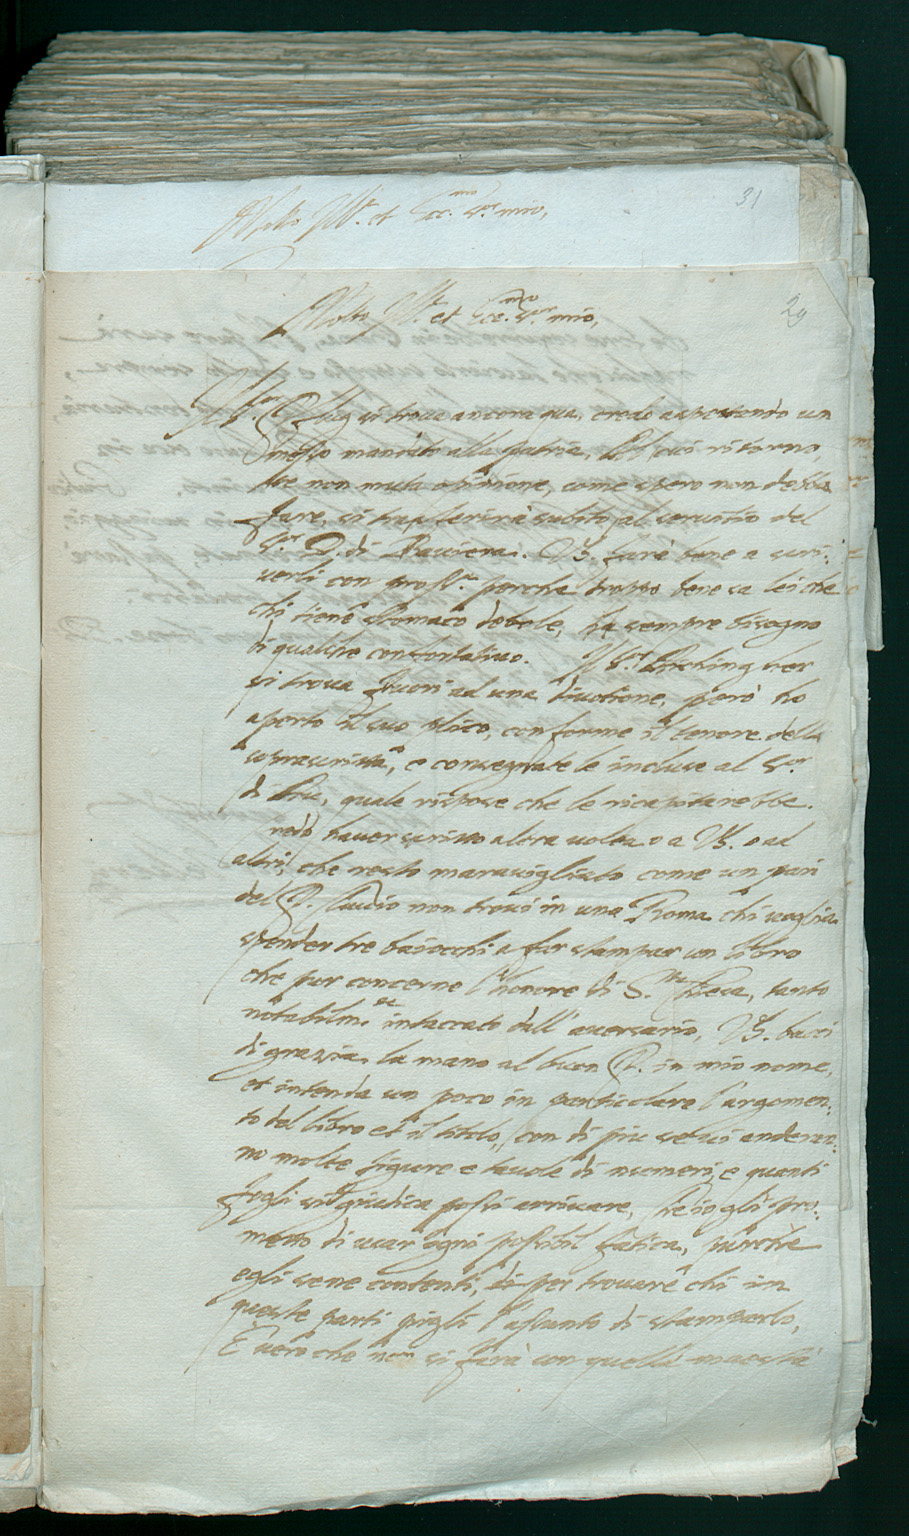 31
Molto Ill.re et Ecc.mo S.or mio,
29
Molto Ill.re et Ecc.mo S.or mio,
si trova ancora qua, credo aspettando un
messo mandato alla patria, cui ritorno,
se non muta opinione, come spero non debba
fare, si trasferirà subito al servitio del
S.r D. di Baviera. VS. farà bene a scri:
verli con perche troppo bene sa lei che
chi tiene stomaco debole, ha sempre bisogno
di qualche confortativo. Il S.or
si trova fuori ad una divotione, però ho
aperto il suo plico, conforme il tenore della
soprascritta, e consegnate le incluse al S.or
di quale rispose che le ricapitarebbe.
Credo haver scritto altra volta o a VS. o ad
altri, che resto maravigliato come un pari
del P. Clavio non trovi in una Roma chi voglia
spender tre baiocchi a far stampar un libro
che pur concerne l'honore di S.ta Chiesa, tanto
notabilm.te intaccato dall' aversario, VS. baci
di grazia la mano al buon P. in mio nome,
et intenda un poco in particolare l'argomen:
to del libro et il titolo, con di piu se vi anderan:
no molte figure e tavole di numeri, e quanti
fogli si giudica possi arrivare, che io gli pro:
metto di usar' ogni possibil fatica, purche
egli sene contenti, di per trovare chi in
queste parti pigli l'assunto di stamparlo,
È vero che non si farà con quella maestà